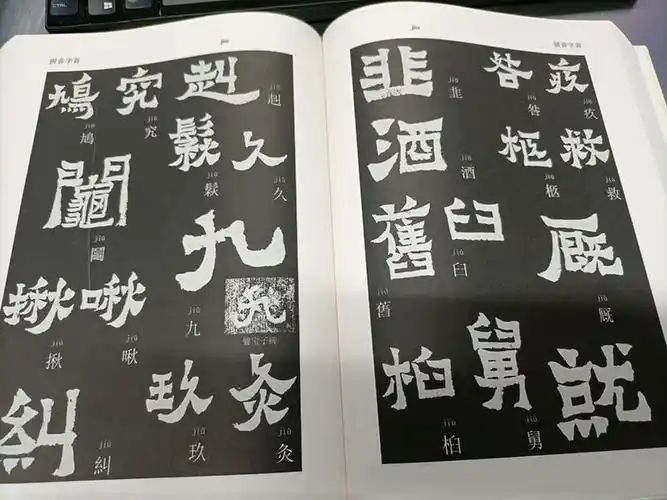 jiu
鳩
jiū
鳩
鬮
jiū
鬮
揪
jiū
揪
糾
jiū
糾
究
jiū
究
啾
jiū
啾
赳
jiū
赳
鬏
jiū
鬏
久
jiǔ
久
九
jiǔ
九
九
爨宝子碑
玖
jiǔ
玖
灸
jiǔ
灸
jiu
韭
jiǔ
韭
酒
jiǔ
酒
舊
jiù
舊
臼
jiù
臼
桕
jiù
咎
jiù
咎
柩
jiù
柩
舅
jiù
舅
疚
jiù
救
jiù
救
厩
jiù
就
jiù